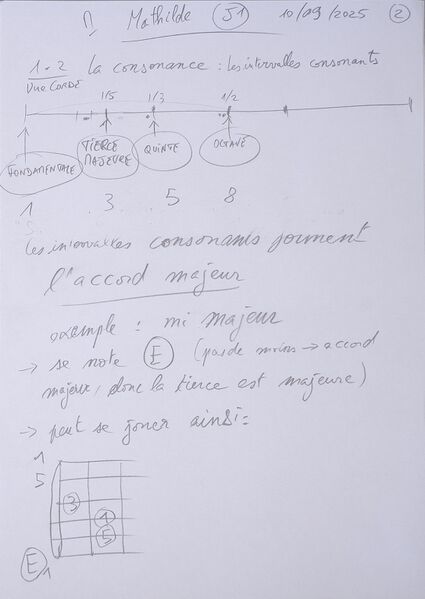 Mathilde (J1) 10/09/2025 (2)
1-2 la consonance : les intervalles consonants
VUE CORDE
1/5 1/3 1/2
FONDAMENTALE TIERCE MAJEURE QUINTE OCTAVE
1 3 5 8
les intervalles consonants forment
l'accord majeur
exemple : mi majeur
→ se note (E) (pas de moins → accord
majeur, donc la tierce est majeure)
→ peut se jouer ainsi :
1
5
3
1
5
E 1